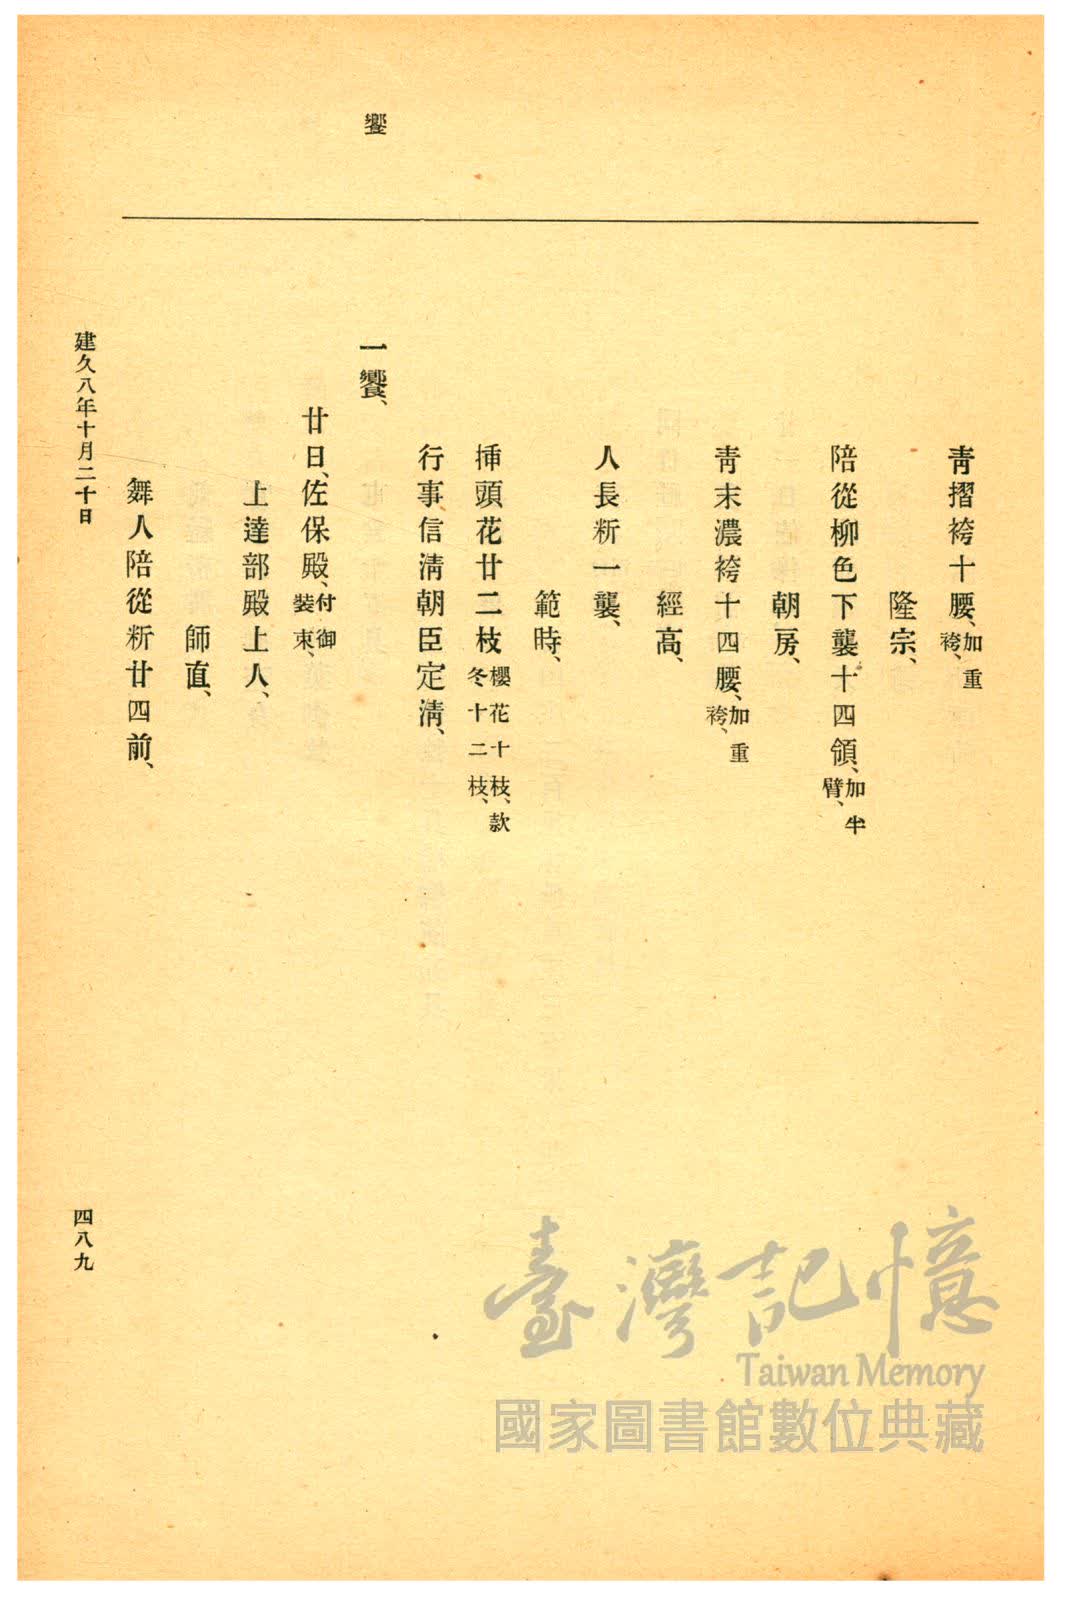 饗
青摺袴十腰、加重袴、
隆宗、
陪從柳色下襲十四領、加半臂、
朝房、
青末濃袴十四腰、加重袴、
經高、
人長新一襲、
範時、
挿頭花廿二枝櫻花十枝、款冬十二枝、
行事信淸朝臣定淸、
一饗、
廿日、佐保殿、付御裝束、
上達部殿上人、
師直、
舞人陪從新廿四前、
建久八年十月二十日
四八九
臺灣記憶
Taiwan Memory
國家圖書館數位典藏